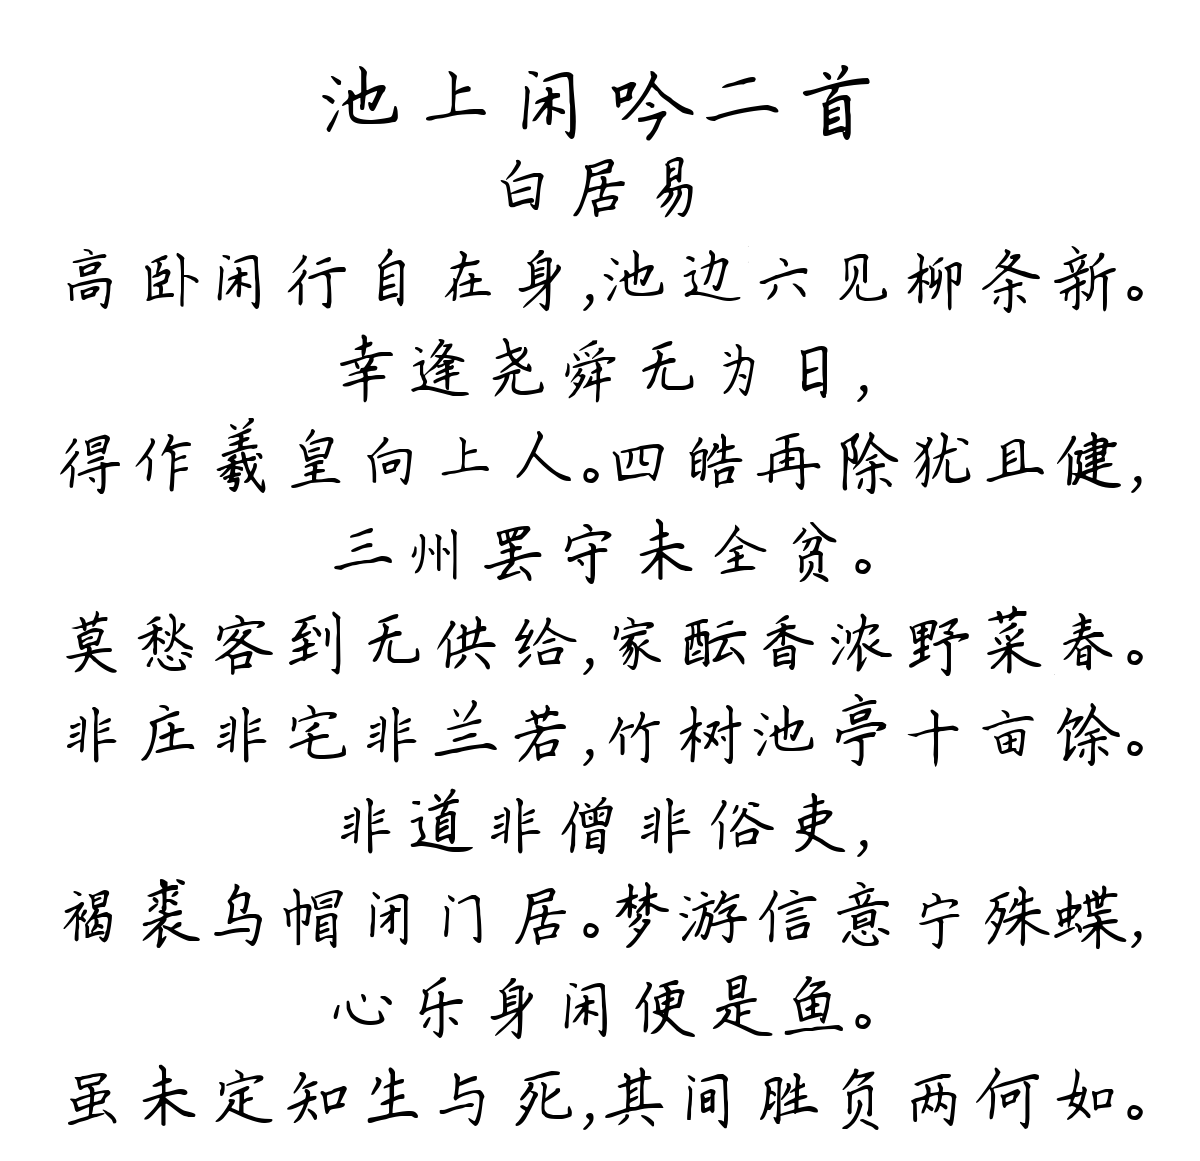 池上闲吟二首
白居易
高卧闲行自在身,池边六见柳条新。
幸逢尧舜无为日,
得作羲皇向上人。四皓再除犹且健,
三州罢守未全贫。
莫愁客到无供给,家酝香浓野菜春。
非庄非宅非兰若,竹树池亭十亩馀。
非道非僧非俗吏,
褐裘乌帽闭门居。梦游信意宁殊蝶,
心乐身闲便是鱼。
虽未定知生与死,其间胜负两何如。